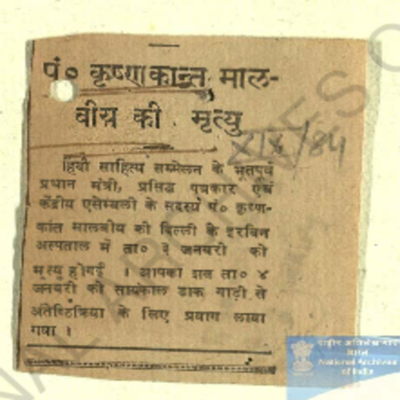 पं० कृष्णकान्त माल-
वीय की मृत्यु
हिंदी साहित्य सम्मेलन के भूतपूर्व
प्रधान मंत्री, प्रसिद्ध पत्रकार एवं
केंद्रीय एसेम्बली के सदस्य पं० कृष्ण-
कांत मालवीय की दिल्ली के इरविन
अस्पताल में ता० ३ जनवरी को
मृत्यु होगई । आपका शव ता० ४
जनवरी को सायंकाल डाक गाड़ी से
अंतेष्टिक्रिया के लिए प्रयाग लाया
गया ।
राष्ट्रीय अभिलेखागार
भारत
National Archives
of India